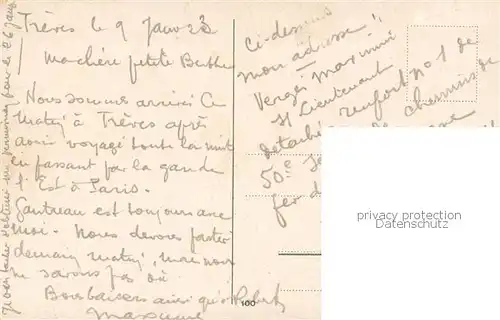 Trèves le 9 Janv 23
Ma chère petite Berthe
Nous sommes arrivés ce
matin à Trèves après
avoir voyagé toute la nuit
en passant par la gande
l'Est à Paris.
Gautreau est toujours avec
moi. Nous devons partir
demain matin, mais nous
ne savons pas où
Bons baisers ainsi qu'à
Maxime
Ci-dessous
mon adresse
Verges Maximin
S/Lieutenant
détaché renfort nº 1 de
50e
chemins de
fer
privacy protection
Datenschutz
100